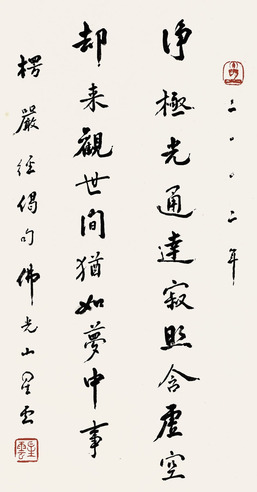 二〇〇二年
净極光通達寂照含虛空
却来觀世间猶如夢中事
楞嚴经偈句佛光山星雲